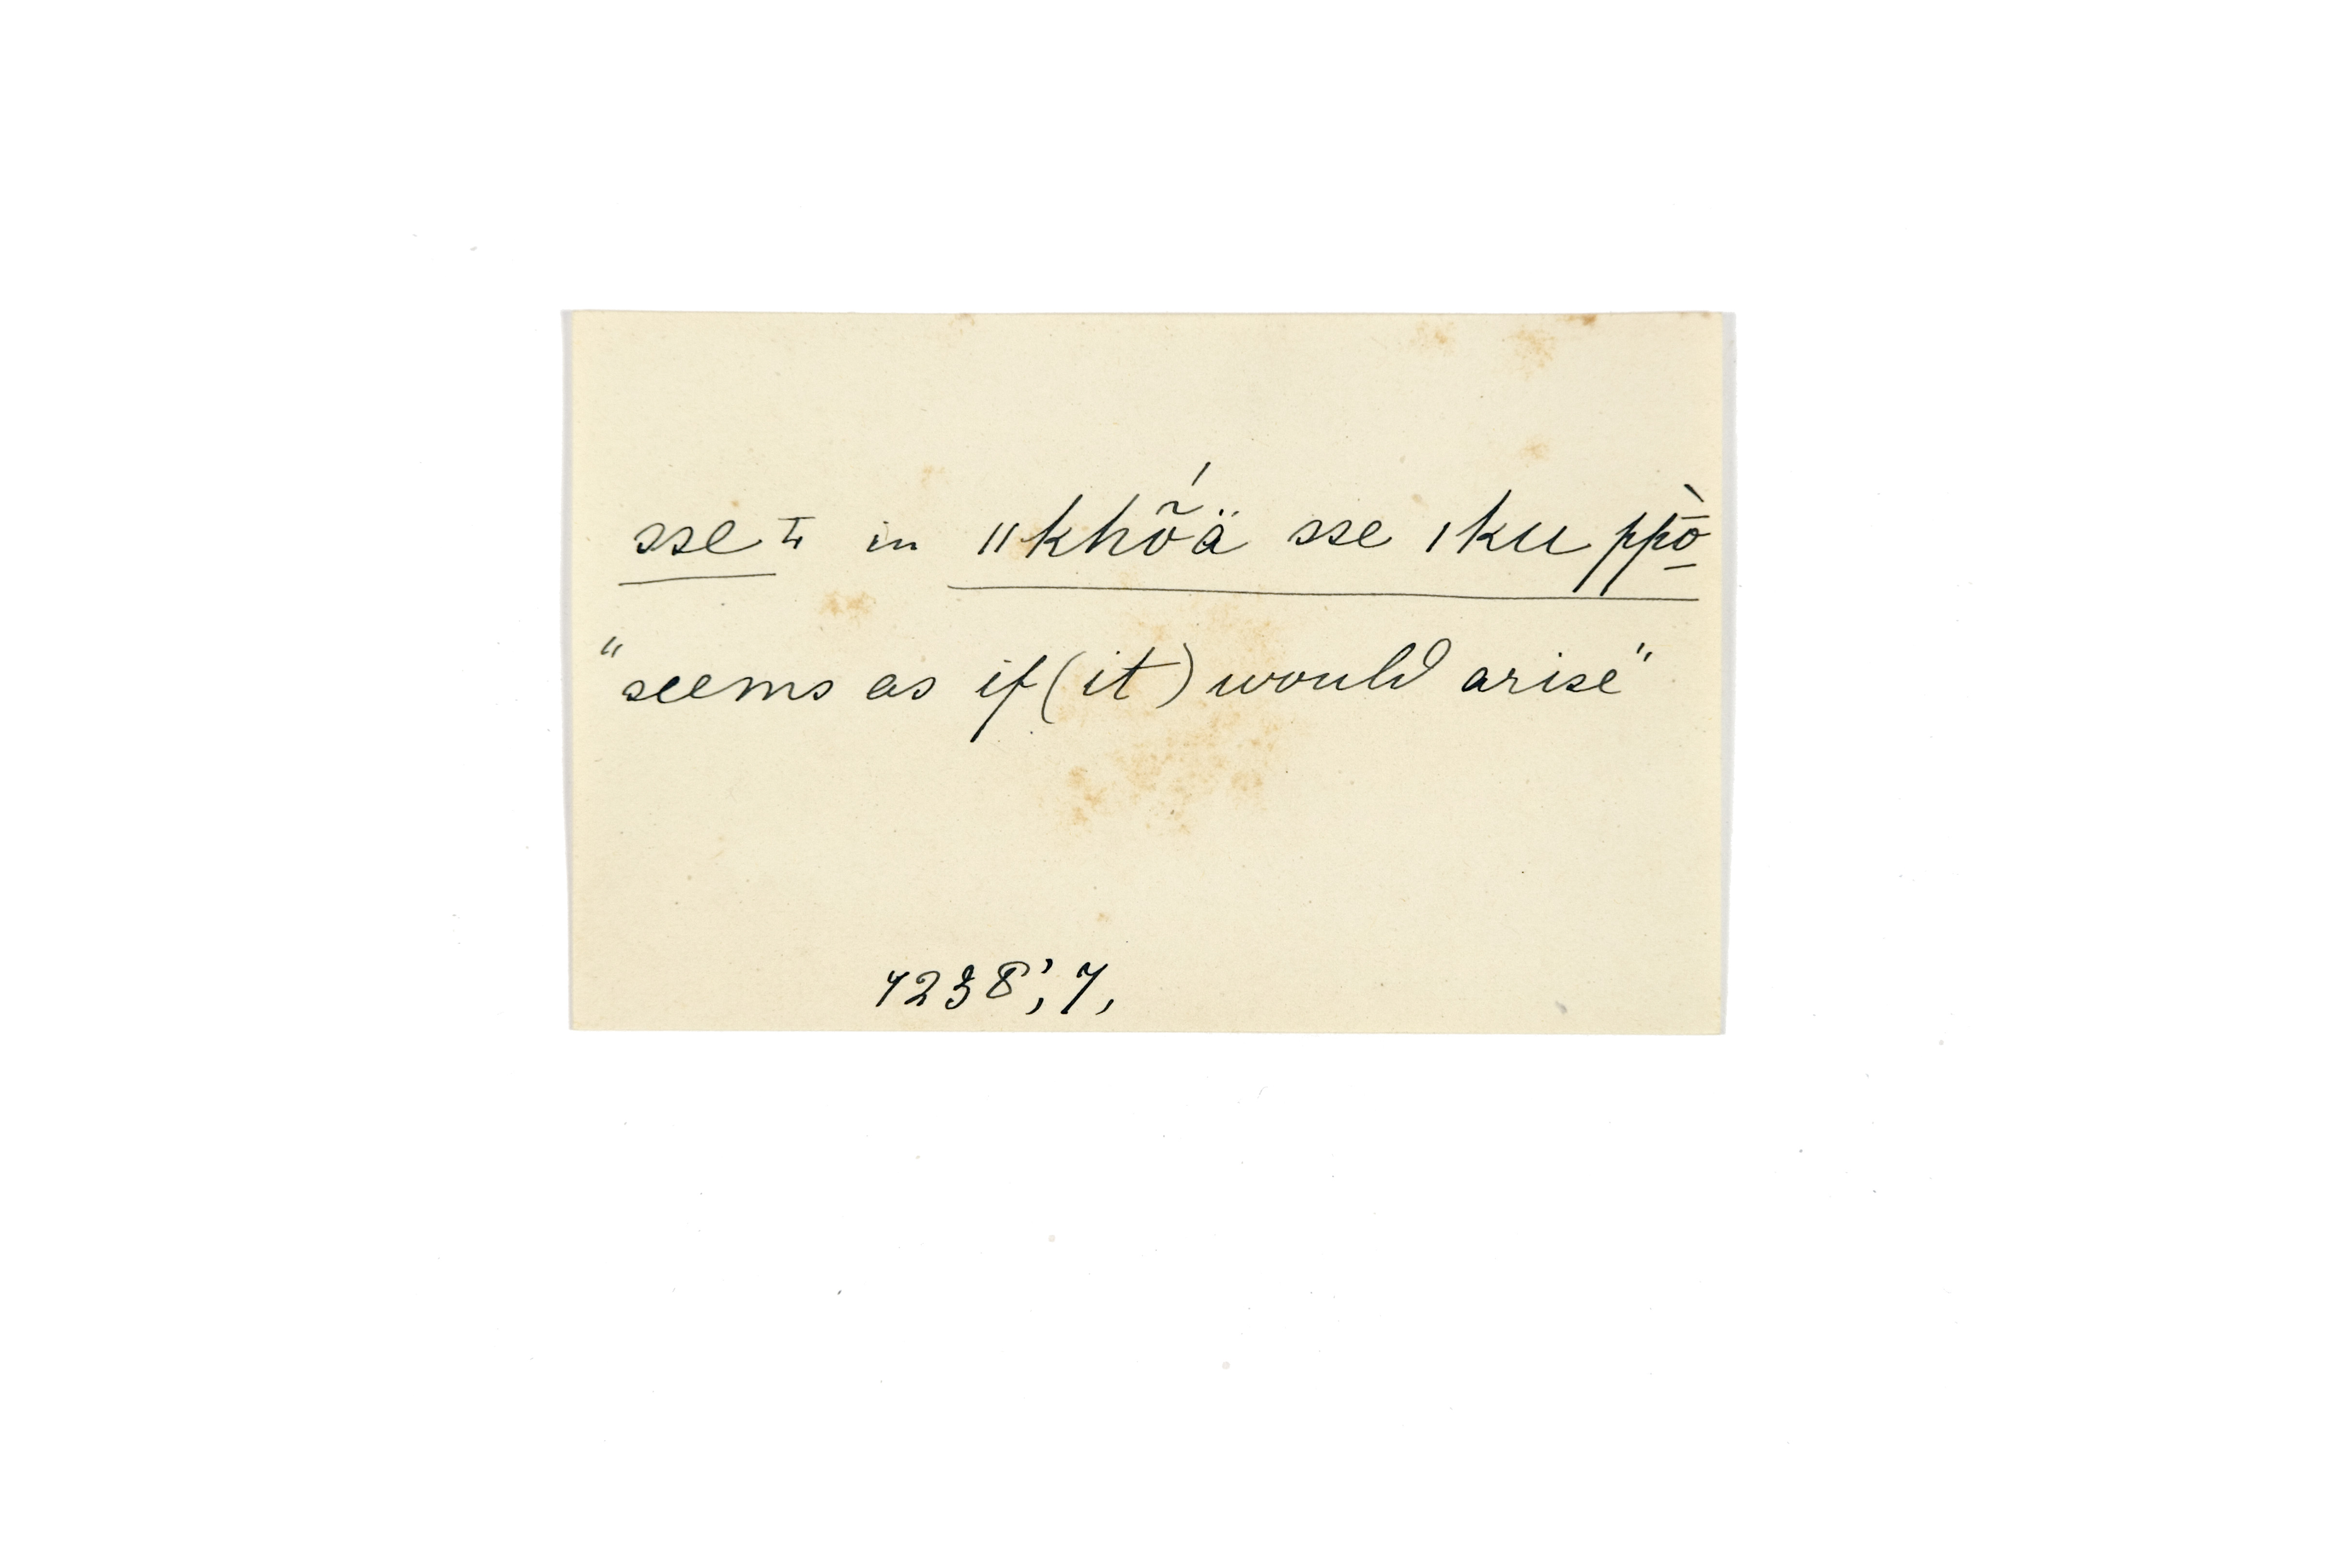 sse I, in ||khṍä sse |ku ppṑ̠
"seems as if (it) would arise"
4238'; 7,